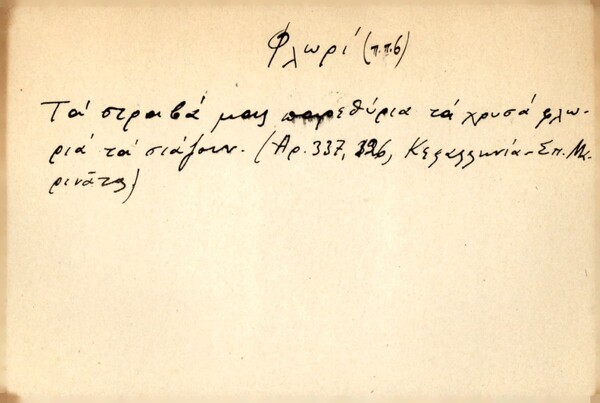 Φλωρί (π.π.6)
Τά στραβά μας παρεθύρια τά χρυσά φλω-
ριά τά σιάζουν. (Αρ. 337, 326, Κεφαλληνία - Σπ. Μα-
ρινάτος)